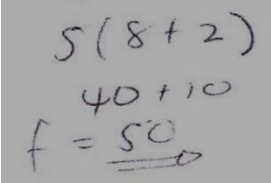 5(8+2)
40+10
f = 50